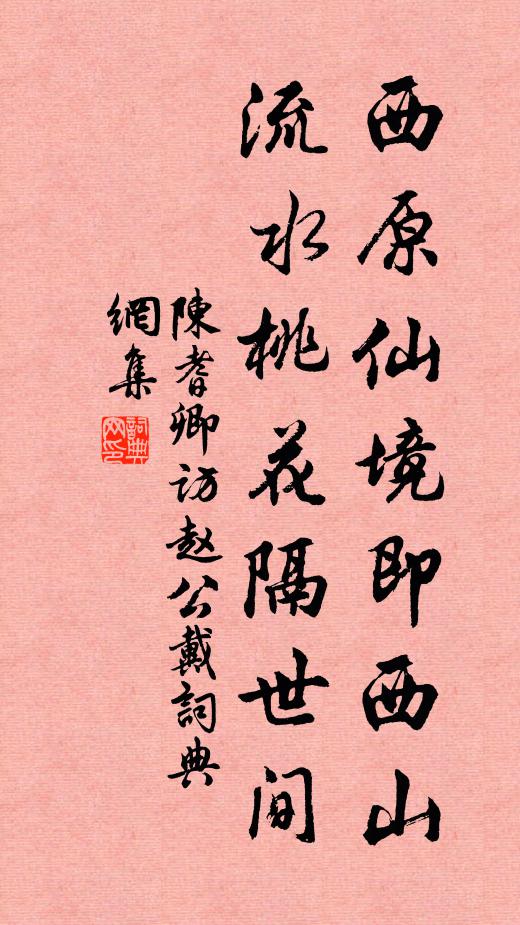 西原仙境即西山
流水桃花隔世间
陳耆卿访赵公戴詞典
網集
詞典
网印